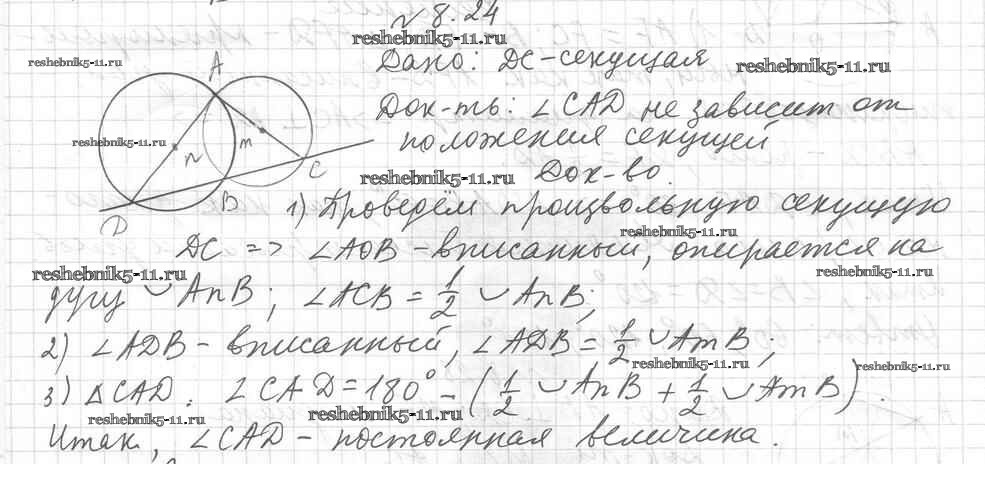 № 8.24
reshebnik5-11.ru
Дано: DC-секущая
reshebnik5-11.ru
reshebnik5-11.ru
A
Док-ть: ∠CAD не зависит от
положения секущей
reshebnik5-11.ru
n
m
C
B
D
reshebnik5-11.ru
Док-во.
1) Проведём произвольную секущую
reshebnik5-11.ru
DC => ∠AOB -вписанный, опирается на
reshebnik5-11.ru
reshebnik5-11.ru
дугу ◡ AnB; ∠ACB = 1/2 ◡ AnB;
2) ∠ADB - вписанный, ∠ADB = 1/2 ◡ AmB;
reshebnik5-11.ru
reshebnik5-11.ru
3) △CAD: ∠CAD = 180° - (1/2 ◡ AnB + 1/2 ◡ AmB).
reshebnik5-11.ru
reshebnik5-11.ru
Итак, ∠CAD - постоянная величина.